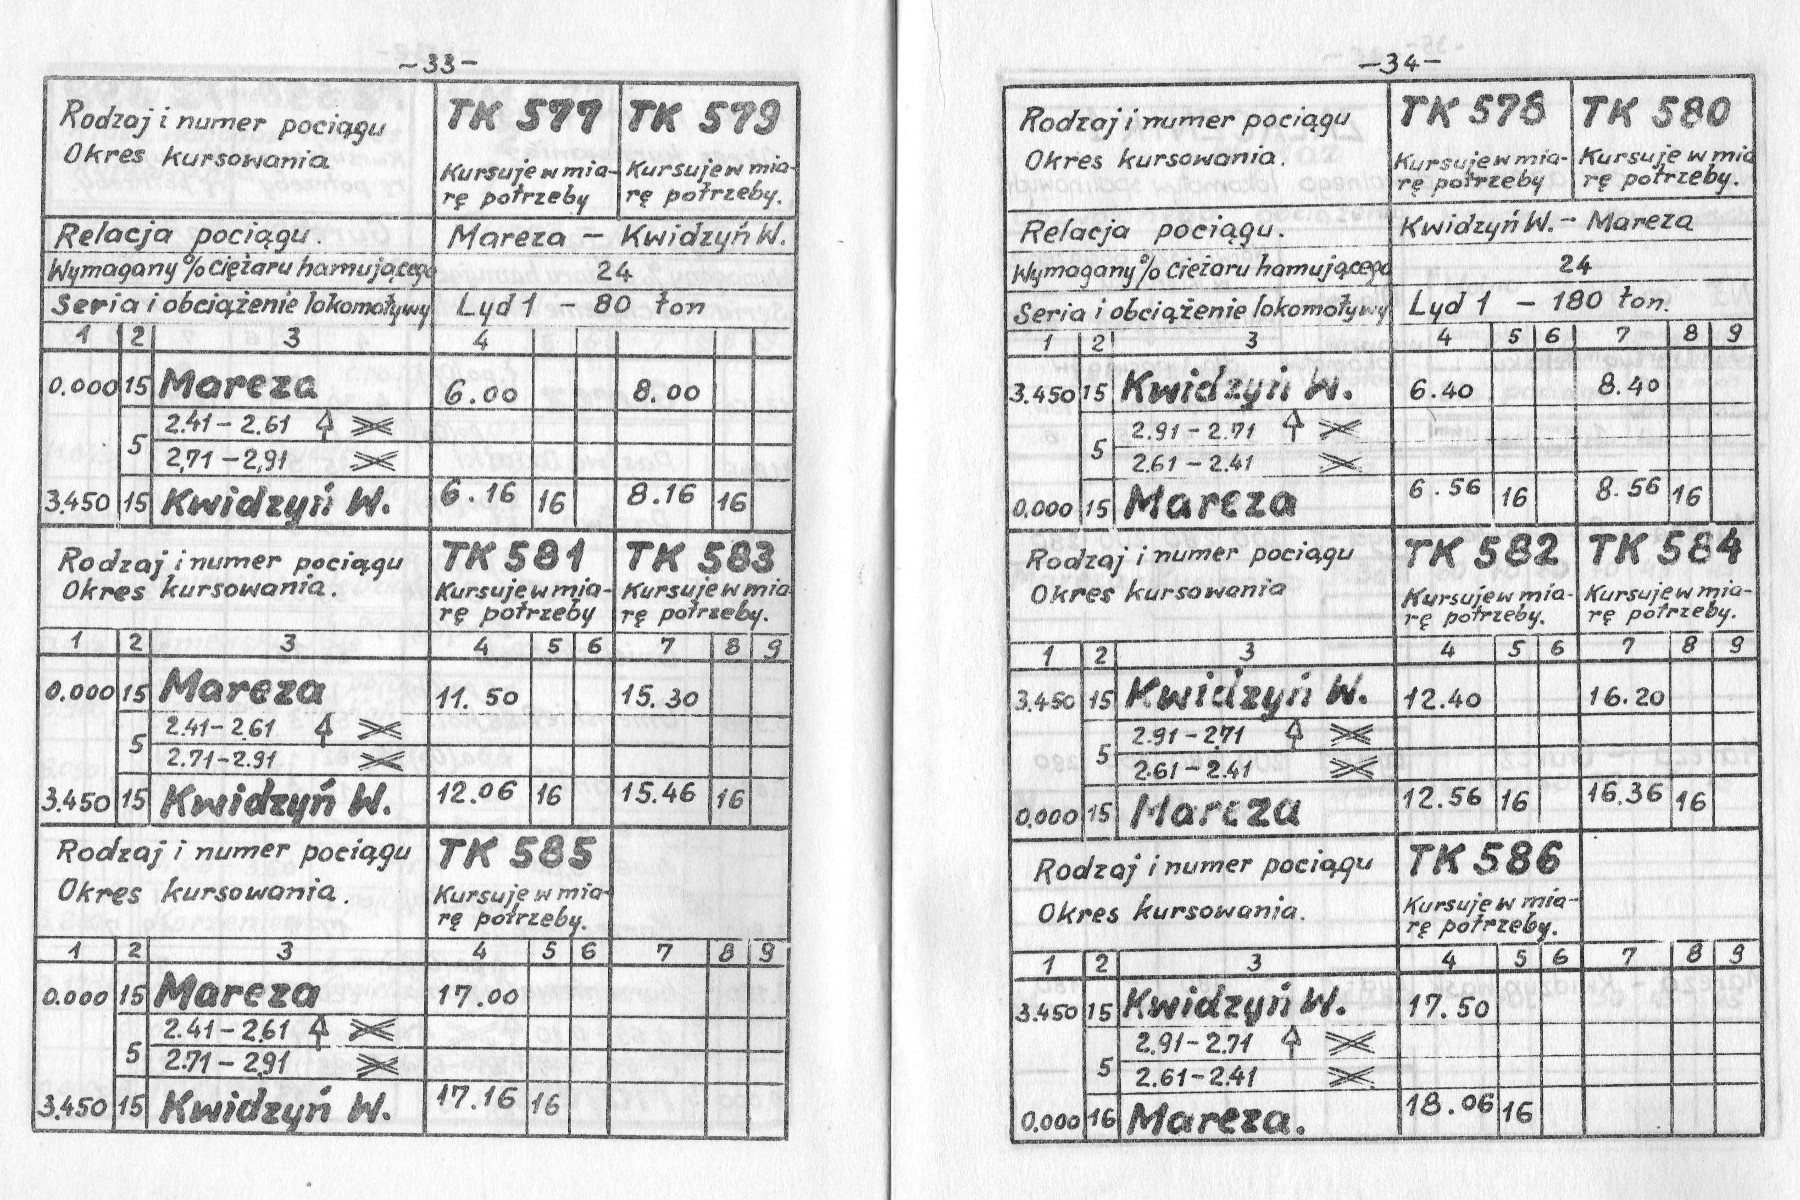 -33-
Rodzaj i numer pociągu
Okres kursowania
TK 577 TK 579
Kursuje w mia- Kursuje w mia-
rę potrzeby rę potrzeby.
Relacja pociągu. Mareza - Kwidzyń W.
Wymagany % ciężaru hamującego 24
Seria i obciążenie lokomotywy Lyd 1 - 80 ton
1 2 3 4
0.000 15 Mareza 6.00 8.00
2.41-2.61
5
2,71-2,91
3.450 15 Kwidzyń W. 6.16 16 8.16 16
Rodzaj i numer pociągu
Okres kursowania.
TK 581 TK 583
Kursuje w mia- Kursuje w mia
rę potrzeby rę potrzeby.
1 2 3 4 5 6 7 8 9
0.000 15 Mareza 11.50 15.30
2.41-2.61
5
2.71-2.91
3.450 15 Kwidzyń W. 12.06 16 15.46 16
Rodzaj i numer pociągu
Okres kursowania.
TK 585
Kursuje w mia-
rę potrzeby.
1 2 3 4 5 6 7 8 9
0.000 15 Mareza 17.00
2.41-2.61
5
2.71-2.91
3.450 15 Kwidzyń W. 17.16 16
-34-
Rodzaj i numer pociągu
Okres kursowania.
TK 578 TK 580
Kursuje w mia- Kursuje w mia
rę potrzeby rę potrzeby.
Relacja pociągu. Kwidzyń W. - Mareza
Wymagany % ciężaru hamującego 24
Seria i obciążenie lokomotywy Lyd 1 - 180 ton.
1 2 3 4 5 6 7 8 9
3.450 15 Kwidzyń W. 6.40 8.40
2.91-2.71
5
2.61-2.41
0.000 15 Mareza 6.56 16 8.56 16
Rodzaj i numer pociągu
Okres kursowania
TK 582 TK 584
Kursuje w mia- Kursuje w mia-
rę potrzeby. rę potrzeby.
1 2 3 4 5 6 7 8 9
3.450 15 Kwidzyń W. 12.40 16.20
2.91-2.71
5
2.61-2.41
0.000 15 Mareza 12.56 16 16.36 16
Rodzaj i numer pociągu
Okres kursowania.
TK 586
Kursuje w mia-
rę potrzeby.
1 2 3 4 5 6 7 8 9
3.450 15 Kwidzyń W. 17.50
2.91-2.71
5
2.61-2.41
0.000 16 Mareza. 18.06 16